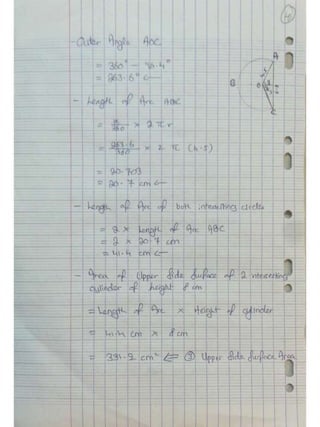 4
- Outer Angle AOC
= 360° - 96.4°
= 263.6°
A
B
O
C
- Length of Arc ABC
= θ/360 × 2 π r
= 263.6/360 × 2 π (4.5)
= 20.703
= 20.7 cm
- Length of Arc of both intersecting circles
= 2 × Length of Arc ABC
= 2 × 20.7 cm
= 41.4 cm
- Area of Upper Side Surface of 2 intersecting
cylinder of height 8 cm
= Length of Arc × Height of cylinder
= 41.4 cm × 8 cm
= 331.2 cm² ⇐ Upper Side Surface Area